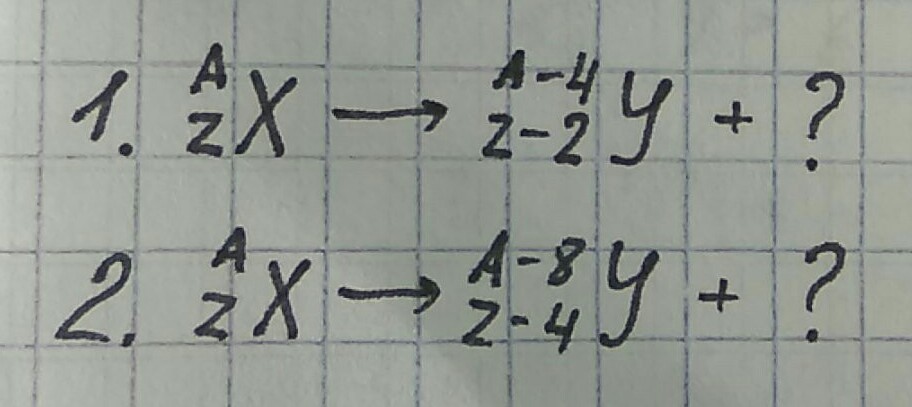 1. ᴬ_Z X → ᴬ⁻⁴_Z₋₂ Y + ?
2. ᴬ_Z X → ᴬ⁻⁸_Z₋₄ Y + ?